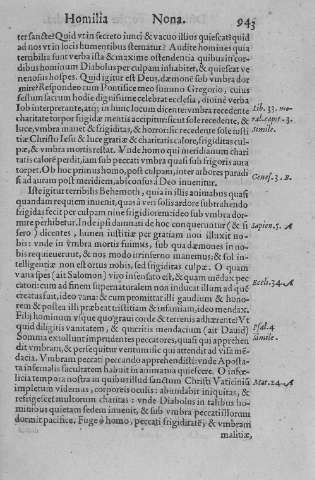 Homilia Nona. 943
ter sancte? Quid vt in secreto iunci & vacuo illius quiescat? quid
ad nos vt in locis humentibus sternatur? Audite homines quia
terribilia sunt verba ista & maxime ostendentia quibus in cor-
dibus hominum Diabolus per culpam inhabitet, & quiescat ve
nenosus hospes. Quid igitur est Deus, dæmone sub vmbra dor
mire? Respondeo cum Pontifice meo summo Gregorio, cuius
festum sacrum hodie dignissime celebrat ecclesia, diuine verba
interpretante Iob. 40. in hunc locum dicente: vmbra recedente
charitate torpor frigidæ mentis accipitur: sicut sole recedente, &
luce, vmbra manet & frigiditas, & horror: sic recedente sole iusti
tiæ Christo Iesu & luce gratiæ & charitatis calore, frigiditas cul-
pæ, & vmbra mortis restat. Vnde homo qui meridianum chari
tatis calorē perdit, iam sub peccati vmbra quasi sub frigoris aura
torpet. Ob hoc primus homo, post culpam, inter arbores paradi
si ad auram post meridiem, absconsus à Deo inuenitur.
Iste igitur terribilis Behemoth, quia in illis animabus quasi
quandam requiem inuenit, quas à veri solis ardore subtrahendo
frigidas fecit per culpam sine frigidiorem: ideo sub vmbra dor-
mire perhibetur. Inde ipsi damnati de hoc conqueruntur (& si
sero) dicentes, lumen iustitiæ per gratiam non illuxit no-
bis: vnde in vmbra mortis fuimus, sub qua dæmones in no-
bis requieuerunt, & nos modo in inferno manemus; & sol in-
telligentiæ non est ortus nobis, sed frigiditas culpæ. O quam
vana spes (ait Salomon) viro insensato est, & quam mēdax pec
catori: cum ad finem supernaturalem non inducit illum ad quē
creatus fuit, ideo vana: & cum promittat illi gaudium & hono-
rem & postea illi præbeat tristitiam & infamiam, ideo mendax.
Filij hominum vsque quo graui corde & terrenis adhærentes? Vt
quid diligitis vanitatem, & quæritis mendacium (ait Dauid)
Somnia extollunt imprudentes peccatores, quasi qui apprehen
dit vmbram, & persequitur ventum: sic qui attendit ad visa mē-
dacia. Vmbram peccati peccando apprehendisti: vnde Aposta-
ta infernalis facultatem habuit in anima tua quiescere. O infœ-
licia tempora nostra in quibus illud sanctum Christi Vaticiniū
impletum videmus, corporeis oculis: abundabit iniquitas, &
refrigescet multorum charitas: vnde Diabolus in talibus ho-
minibus quietam sedem inuenit, & sub vmbra peccati illorum
dormit pacifice. Fuge ô homo, peccati frigiditatē; & vmbram
malitiæ,
Lib. 33. mo-
ral. capit. 3.
Simile.
Genes. 3. B.
Sapien. 5. A
Eccli. 34. A
Psal. 4
Simile.
Mat. 24. A